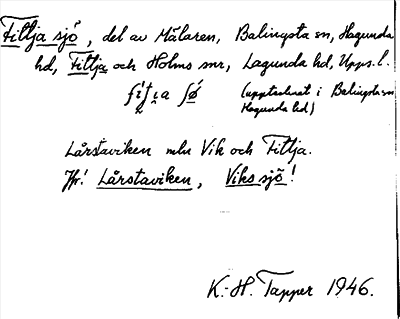 Fittja sjö, del av Mälaren, Balingsta sn, Hagunda
hd, Fittja och Holms snr, Lagunda hd, Upps. l.
(upptecknat i Balingsta sn
Hagunda hd)
Lårstaviken mln Vik och Fittja.
Jfr! Lårstaviken, Viks sjö!
K.-H. Tapper 1946.